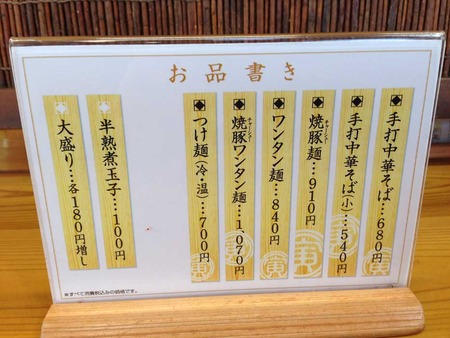 お品書き
手打中華そば…680円
手打中華そば(小)…540円
焼豚麺…910円
チャーシュー
ワンタン麺…840円
焼豚ワンタン麺…1,070円
チャーシュー
つけ麺(冷・温)…700円
半熟煮玉子…100円
大盛り…各180円増し
※すべて消費税込みの価格です。